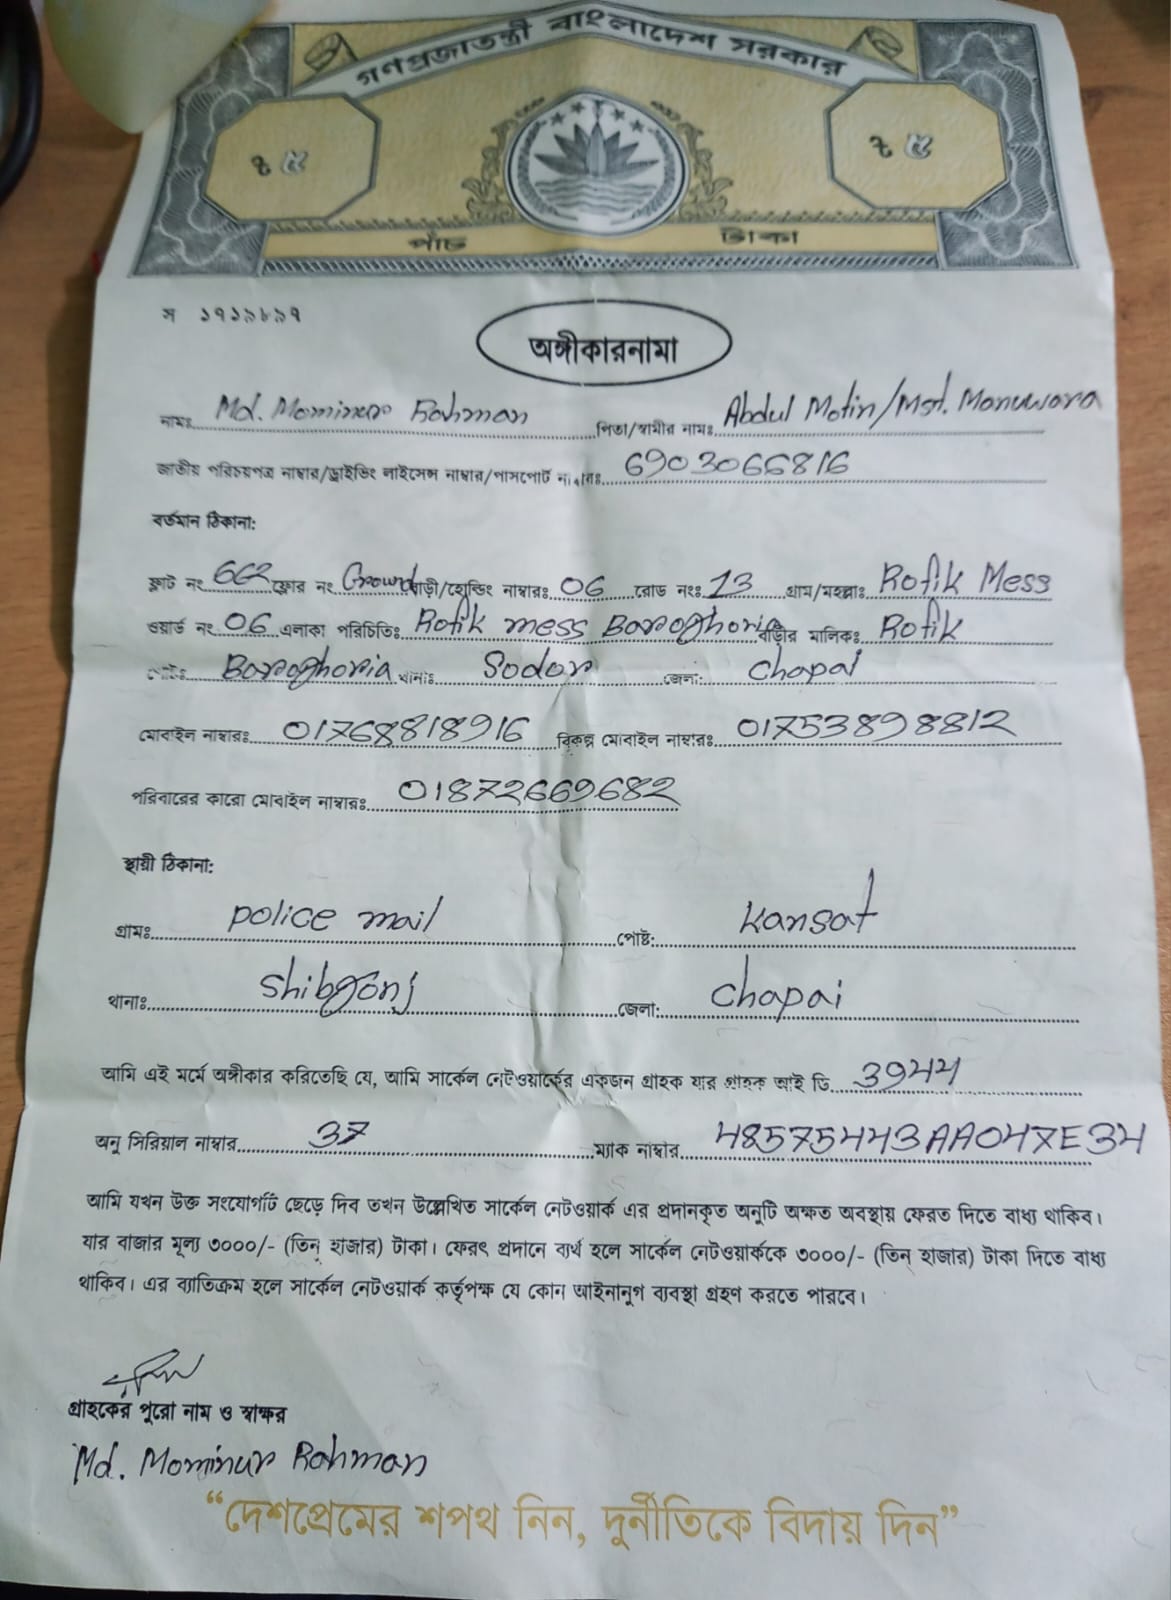 গণপ্রজাতন্ত্রী বাংলাদেশ সরকার
৳ ৫ ৳ ৫
পাঁচ টাকা
স ১৭১৯৮৯৭
অঙ্গীকারনামা
নামঃ Md. Mominur Rahman পিতা/স্বামীর নামঃ Abdul Motin/Mst. Monuwara
জাতীয় পরিচয়পত্র নাম্বার/ড্রাইভিং লাইসেন্স নাম্বার/পাসপোর্ট নাম্বারঃ 6903066816
বর্তমান ঠিকানা:
ফ্লাট নং 662 ফ্লোর নং Ground বাড়ী/হোল্ডিং নাম্বারঃ 06 রোড নংঃ 13 গ্রাম/মহল্লাঃ Rofik Mess
ওয়ার্ড নং 06 এলাকা পরিচিতিঃ Rofik mess Baroghoria বাড়ীর মালিকঃ Rofik
Baroghoria থানাঃ Sodor জেলা: Chapai
মোবাইল নাম্বারঃ 01768818916 বিকল্প মোবাইল নাম্বারঃ 01753898812
পরিবারের কারো মোবাইল নাম্বারঃ 01872669682
স্থায়ী ঠিকানা:
গ্রামঃ police mail পোষ্ট: Kansat
থানাঃ Shibgonj জেলা: Chapai
আমি এই মর্মে অঙ্গীকার করিতেছি যে, আমি সার্কেল নেটওয়ার্কের একজন গ্রাহক যার গ্রাহক আই ডি 3944
অনু সিরিয়াল নাম্বার 37 ম্যাক নাম্বার 48575443AA047E34
আমি যখন উক্ত সংযোগটি ছেড়ে দিব তখন উল্লেখিত সার্কেল নেটওয়ার্ক এর প্রদানকৃত অনুটি অক্ষত অবস্থায় ফেরত দিতে বাধ্য থাকিব।
যার বাজার মূল্য ৩০০০/- (তিন হাজার) টাকা। ফেরৎ প্রদানে ব্যর্থ হলে সার্কেল নেটওয়ার্ককে ৩০০০/- (তিন হাজার) টাকা দিতে বাধ্য
থাকিব। এর ব্যাতিক্রম হলে সার্কেল নেটওয়ার্ক কর্তৃপক্ষ যে কোন আইনানুগ ব্যবস্থা গ্রহণ করতে পারবে।
গ্রাহকের পুরো নাম ও স্বাক্ষর
Md. Mominur Rahman
“দেশপ্রেমের শপথ নিন, দুর্নীতিকে বিদায় দিন”